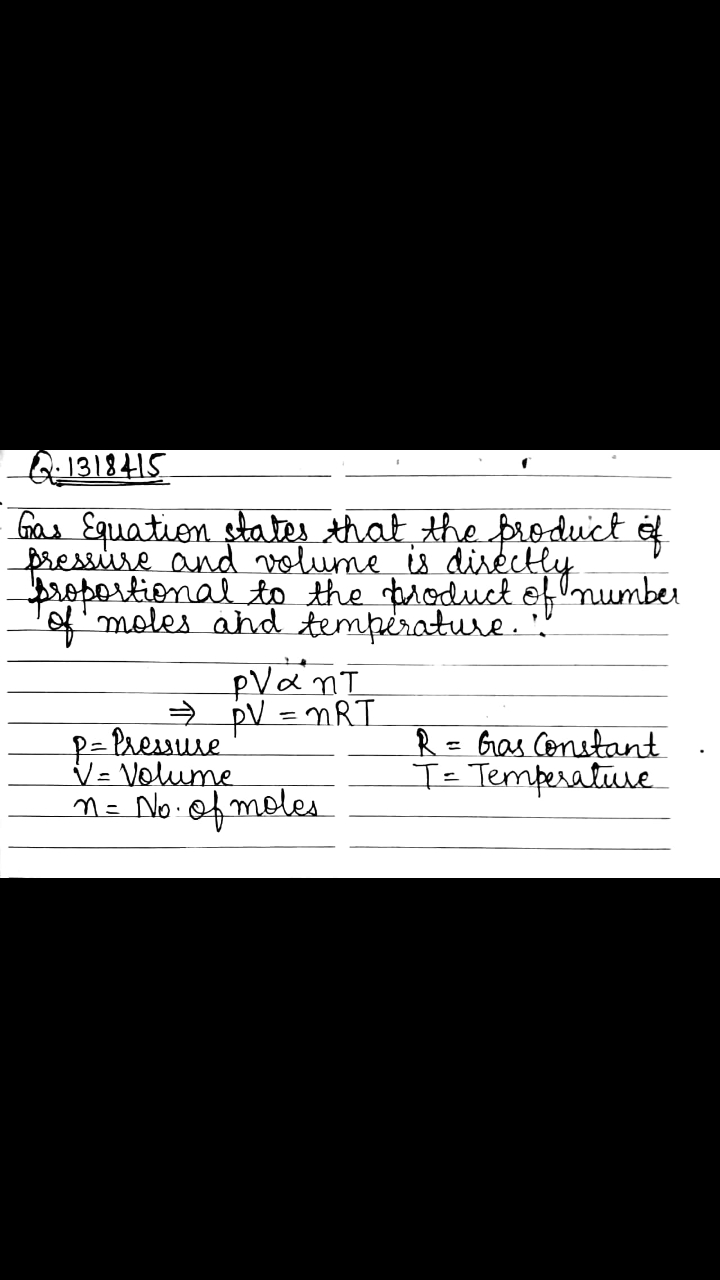 Q.1318415
Gas Equation states that the product of
pressure and volume is directly
proportional to the product of number
of moles and temperature. ∴
pV ∝ nT
⇒ pV = nRT
p = Pressure R = Gas Constant
V = Volume T = Temperature
n = No. of moles